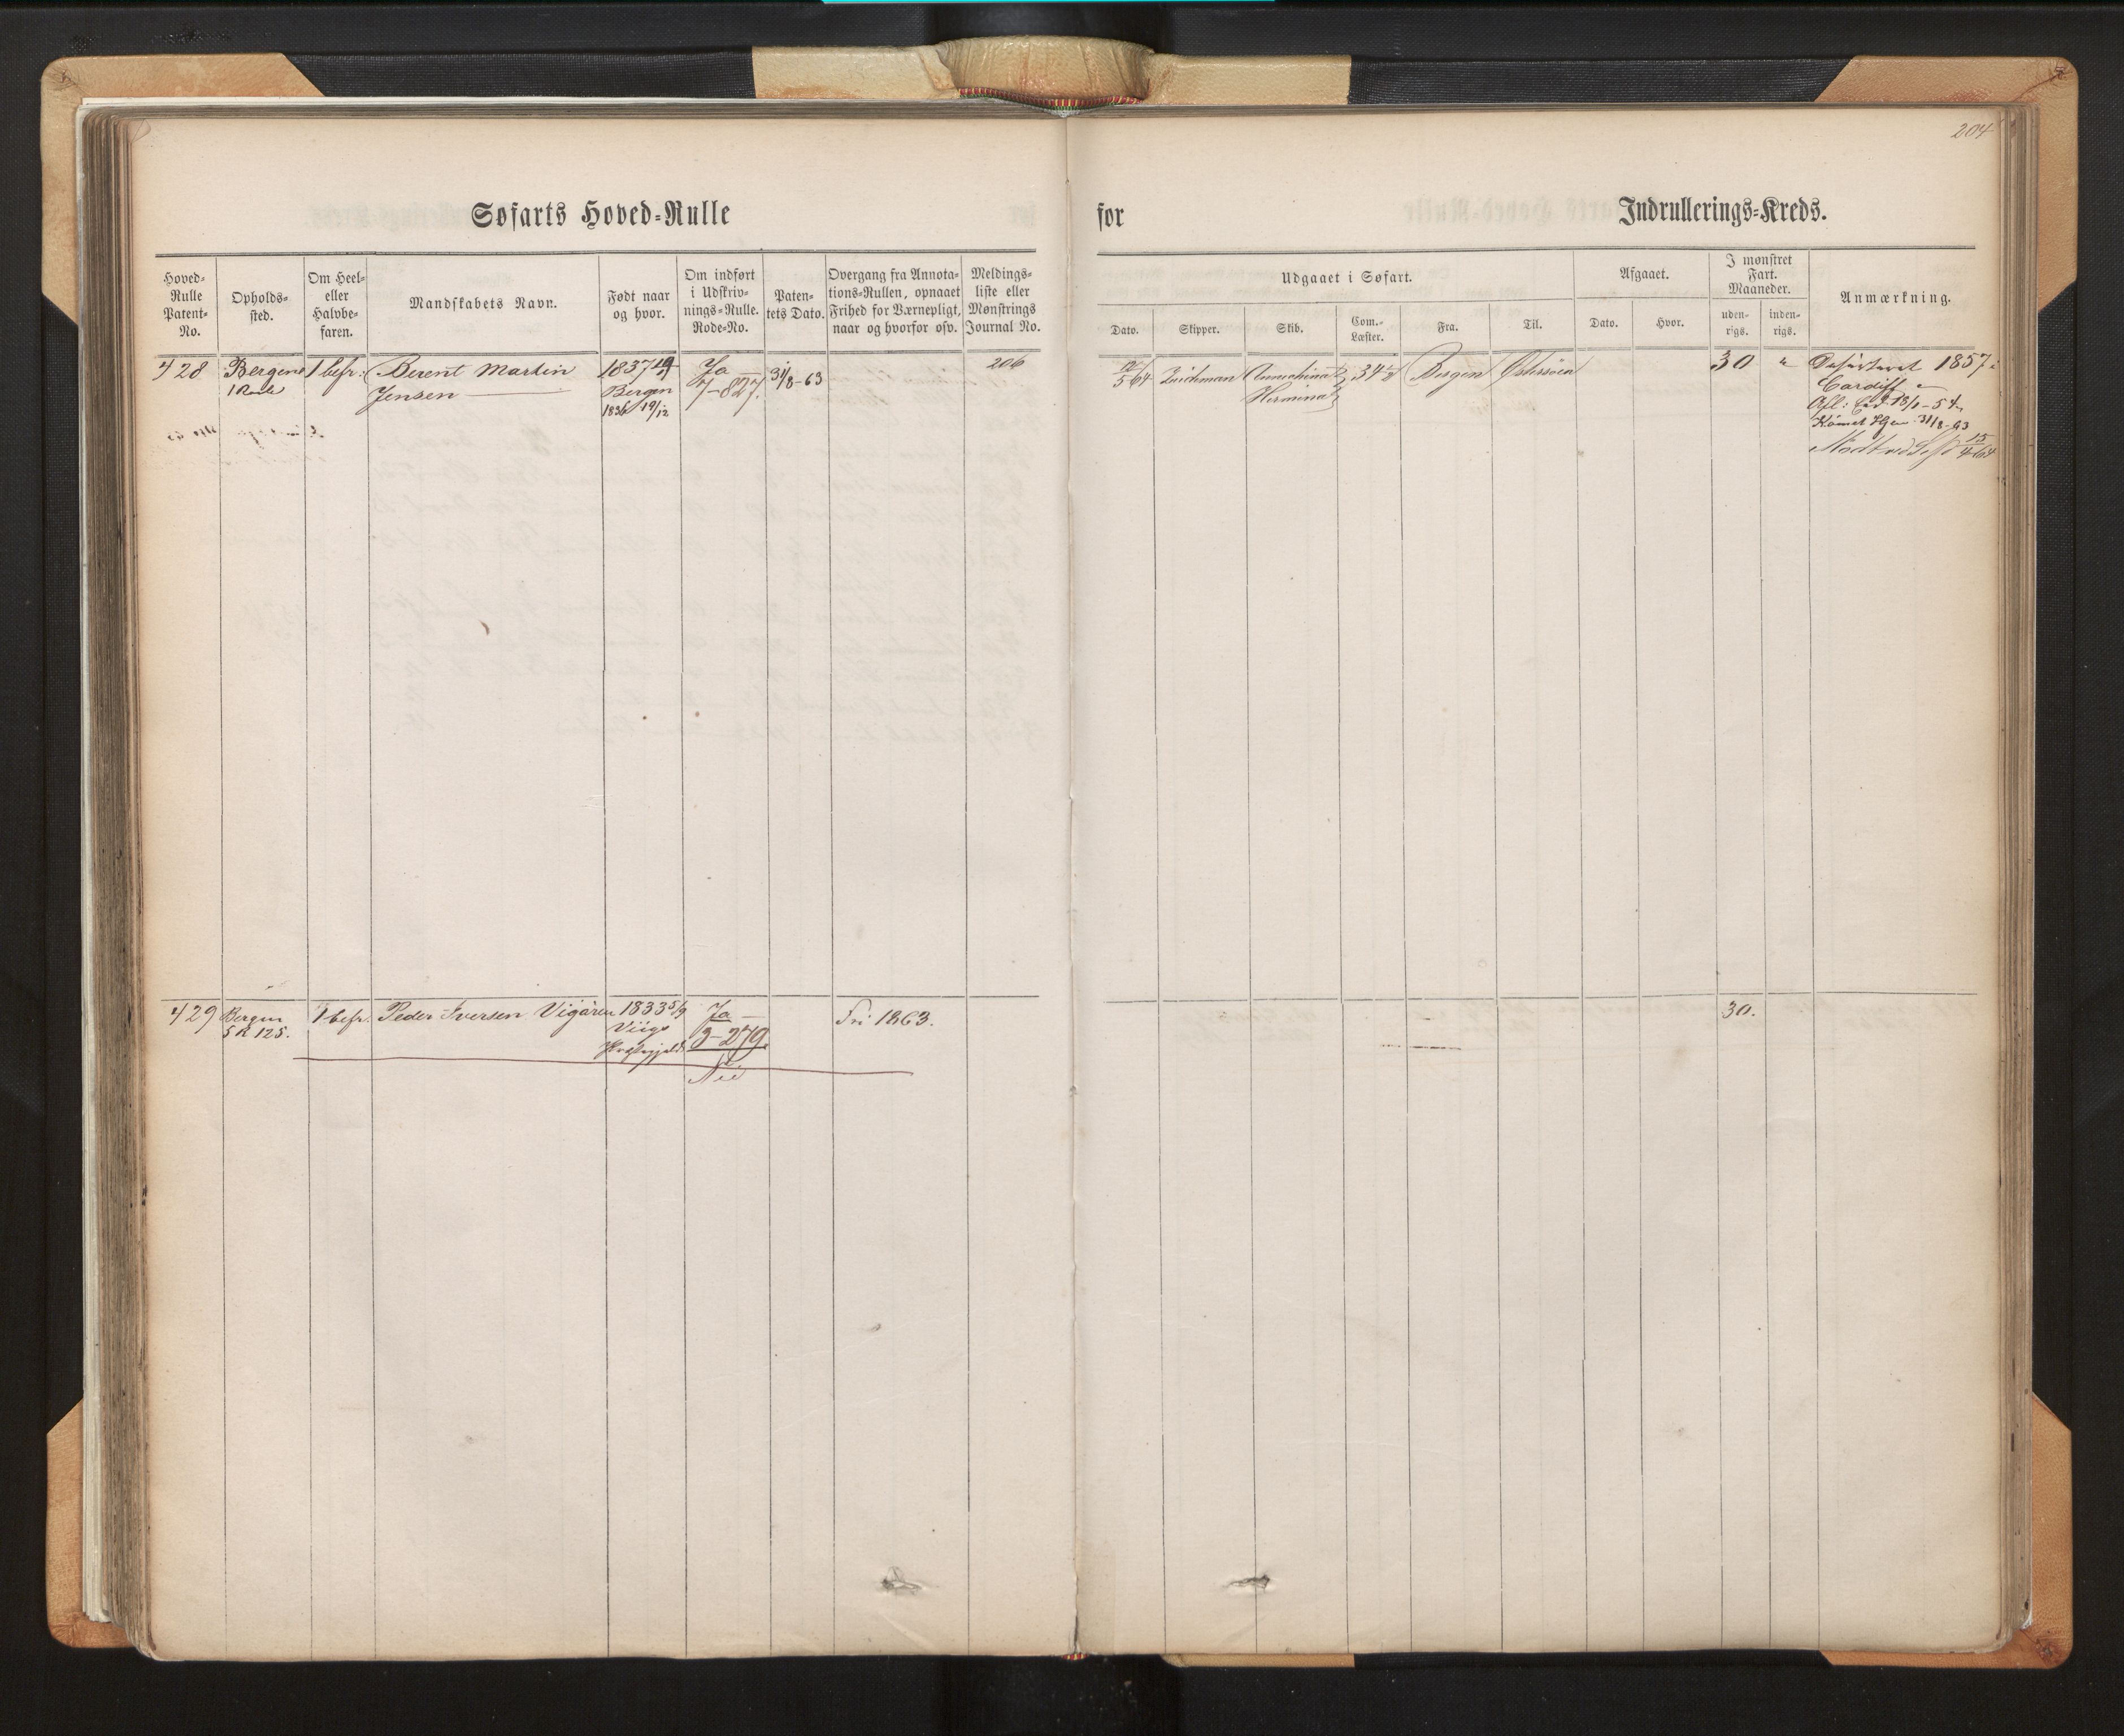 204
Søfarts Hoved-Rulle
for
Indrullerings-Kreds.
Hoved-
Rulle
Patent-
No.
Opholds-
sted.
Om Heel-
eller
Halvbe-
faren.
Mandskabets Navn.
Født naar
og hvor.
Om indført
i Udskriv-
nings-Rulle.
Rode-No.
Paten-
tets Dato.
Overgang fra Annota-
tions-Rullen, opnaaet
Frihed for Værnepligt,
naar og hvorfor osv.
Meldings-
liste eller
Mønstrings
Journal No.
Udgaaet i Søfart.
Dato.
Skipper.
Skib.
Com.-
Læster.
Fra.
Til.
Afgaaet.
Dato.
Hvor.
I mønstret
Fart.
Maaneder.
uden-
rigs.
inden-
rigs.
Anmærkning.
428
Bergens
1 Rode
1 befr:
Berent Martin
Jensen
1837
Bergen
1836 19/12
Ja
7-827.
31/8-63
206
Herminal
34½
Bergen
Østersøen
30
"
Deserteret 1857 i
Cardiff
31/8-63
429
Bergen
5 R 125.
1 befr.
Peder Iversen Vigøren
1833 5/9
Viigs
Ja
3-279.
Nei
Fri 1863.
30.